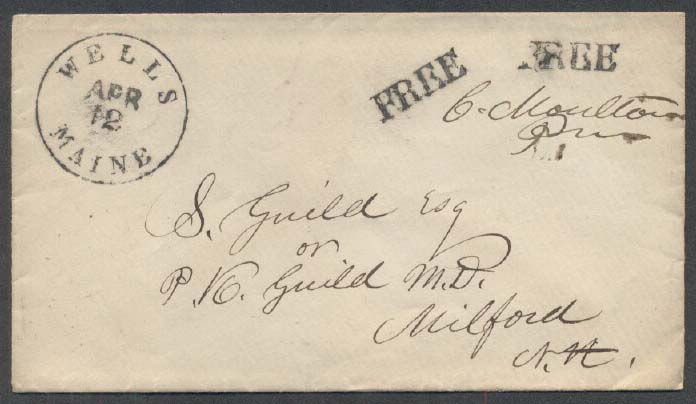 WELLS
APR
12
MAINE
FREE
FREE
C. Moulton
P.M.
S. Guild Esq
or
P. K. Guild M.D.
Milford
N.H.